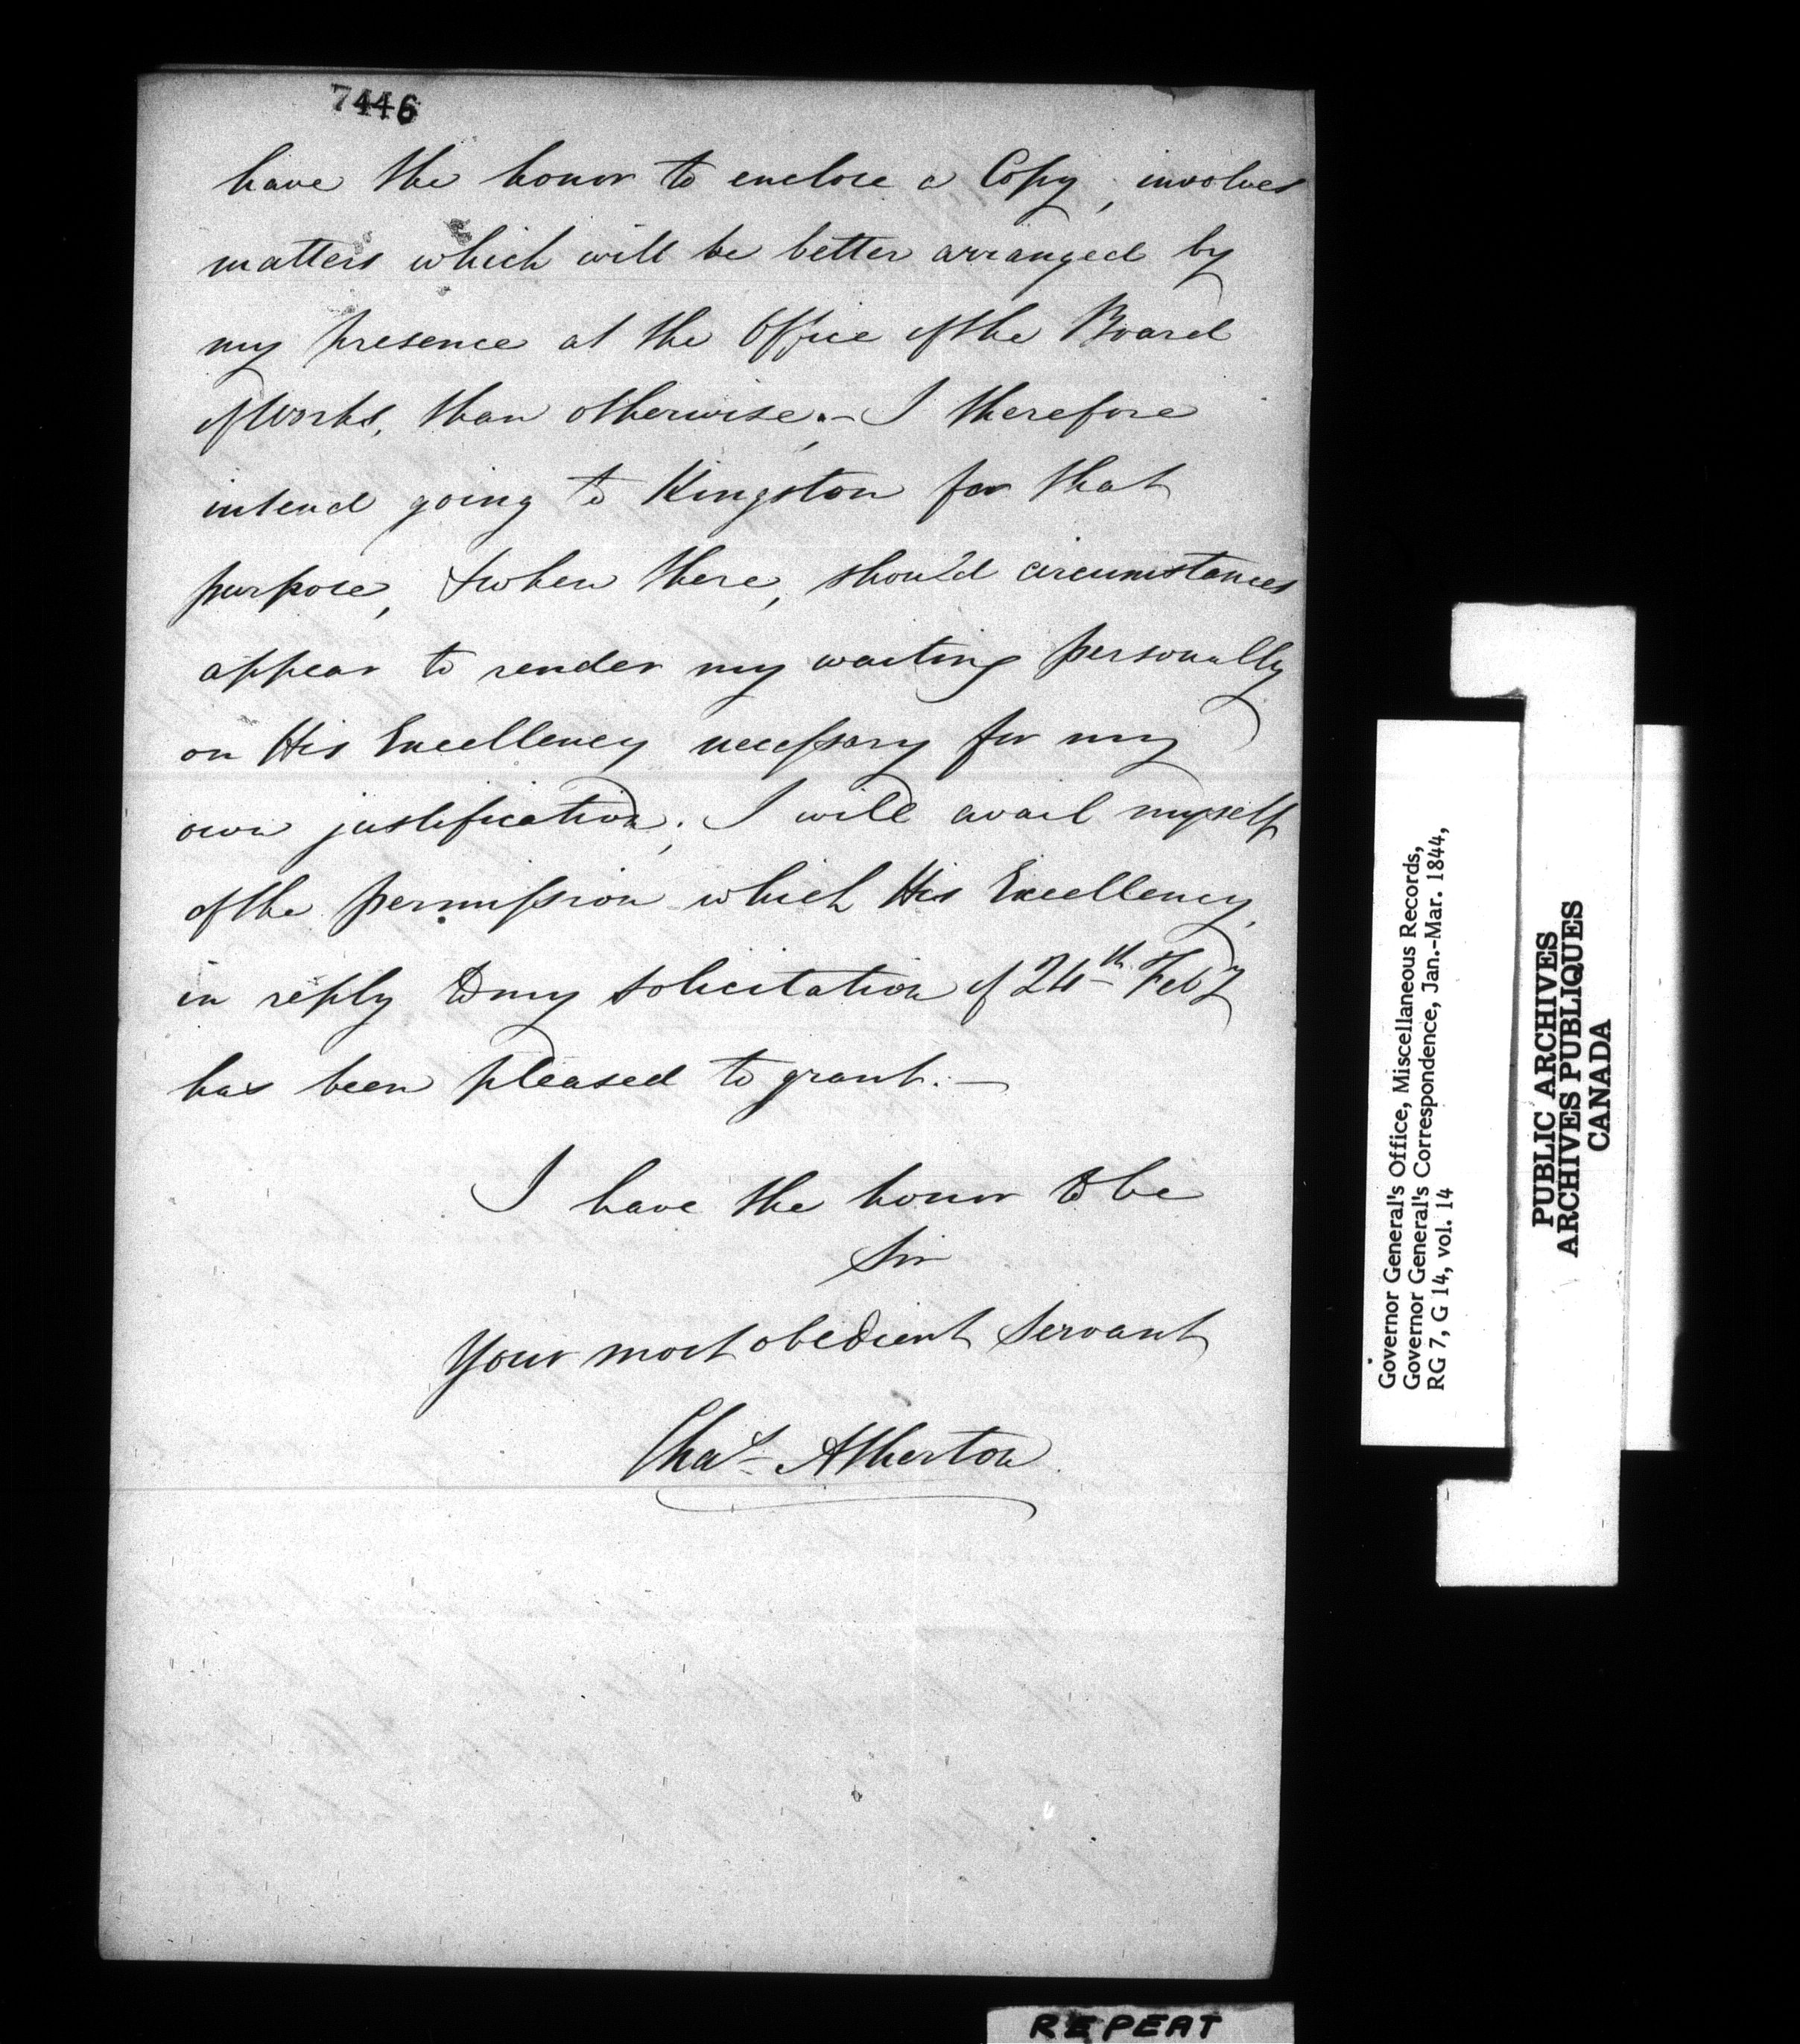 7446
have the honor to enclose a Copy, involves
matters which will be better arranged by
my presence at the Office of the Board
of Works, than otherwise.— I therefore
intend going to Kingston for that
purpose, & when there, should circumstances
appear to render my waiting personally
on His Excellency necessary for my
own justification; I will avail myself
of the permission which His Excellency,
in reply to my solicitation of 24th Feby
has been pleased to grant.—
I have the honor to be
Sir
Your most obedient Servant
Chas Atherton
Governor General's Office, Miscellaneous Records,
Governor General's Correspondence, Jan.-Mar. 1844,
RG 7, G 14, vol. 14
PUBLIC ARCHIVES
ARCHIVES PUBLIQUES
CANADA
REPEAT